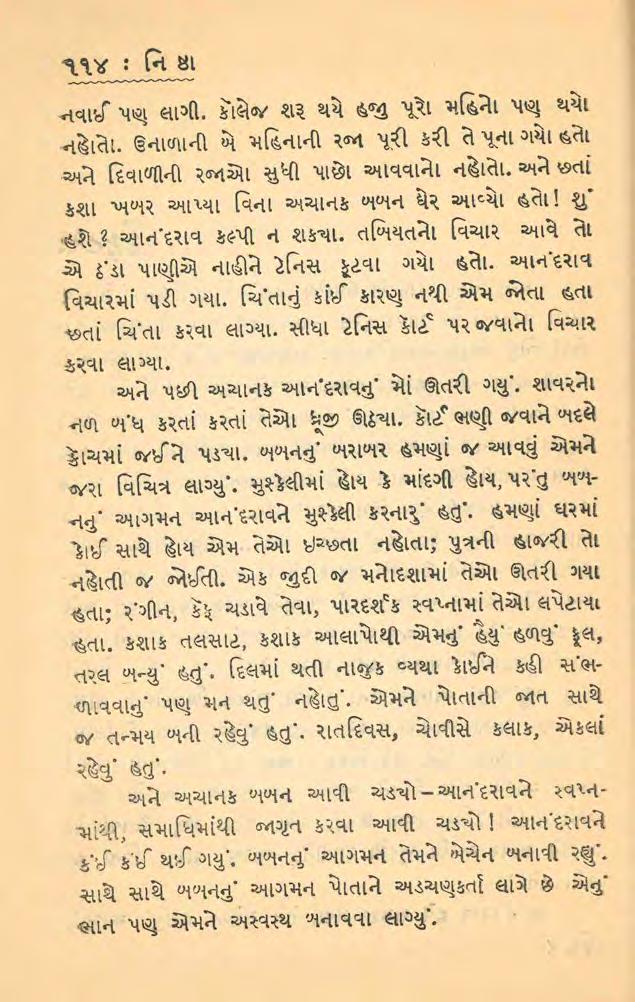 ૧૧૪ : નિ ષ્ઠા
નવાઈ પણ લાગી. કૉલેજ શરૂ થયે હજી પૂરો મહિનો પણ થયો
નહોતો. ઉનાળાની બે મહિનાની રજા પૂરી કરી તે પૂના ગયો હતો
અને દિવાળીની રજાઓ સુધી પાછો આવવાનો નહોતો. અને છતાં
કશા ખબર આપ્યા વિના અચાનક બબન ઘેર આવ્યો હતો! શું
હશે ? આનંદરાવ કલ્પી ન શકયા. તબિયતનો વિચાર આવે તો
એ ઠંડા પાણીએ નાહીને ટેનિસ કૂટવા ગયો હતો. આનંદરાવ
વિચારમાં પડી ગયા. ચિંતાનું કાંઈ કારણ નથી એમ જોતા હતા
છતાં ચિંતા કરવા લાગ્યા. સીધા ટેનિસ કૉર્ટ પર જવાનો વિચાર
કરવા લાગ્યા.
અને પછી અચાનક આનંદરાવનું મોં ઊતરી ગયું. શાવરનો
નળ બંધ કરતાં કરતાં તેઓ ધ્રૂજી ઊઠયા. કૉર્ટ ભણી જવાને બદલે
કોચમાં જઈને પડયા. બબનનું બરાબર હમણાં જ આવવું એમને
જરા વિચિત્ર લાગ્યું. મુશ્કેલીમાં હોય કે માંદગી હોય, પરંતુ બબ-
નનું આગમન આનંદરાવને મુશ્કેલી કરનારું હતું. હમણાં ઘરમાં
કોઈ સાથે હોય એમ તેઓ ઇચ્છતા નહોતા; પુત્રની હાજરી તો
નહોતી જ જોઈતી. એક જુદી જ મનોદશામાં તેઓ ઊતરી ગયા
હતા; રંગીન, કૅફ ચડાવે તેવા, પારદર્શક સ્વપ્નામાં તેઓ લપેટાયા
હતા. કશાક તલસાટ, કશાક આલાપોથી એમનું હૈયું હળવું ફૂલ,
તરલ બન્યું હતું. દિલમાં થતી નાજુક વ્યથા કોઈને કહી સંભ-
ળાવવાનું પણ મન થતું નહોતું. એમને પોતાની જાત સાથે
જ તન્મય બની રહેવું હતું. રાતદિવસ, ચોવીસે કલાક, એકલાં
રહેવું હતું.
અને અચાનક બબન આવી ચડયો – આનંદરાવને સ્વપ્ન-
માંથી, સમાધિમાંથી જાગૃત કરવા આવી ચડયો! આનંદરાવને
કંઈ કંઈ થઈ ગયું. બબનનું આગમન તેમને બેચેન બનાવી રહ્યું.
સાથે સાથે બબનનું આગમન પોતાને અડચણકર્તા લાગે છે એનું
ભાન પણ એમને અસ્વસ્થ બનાવવા લાગ્યું.